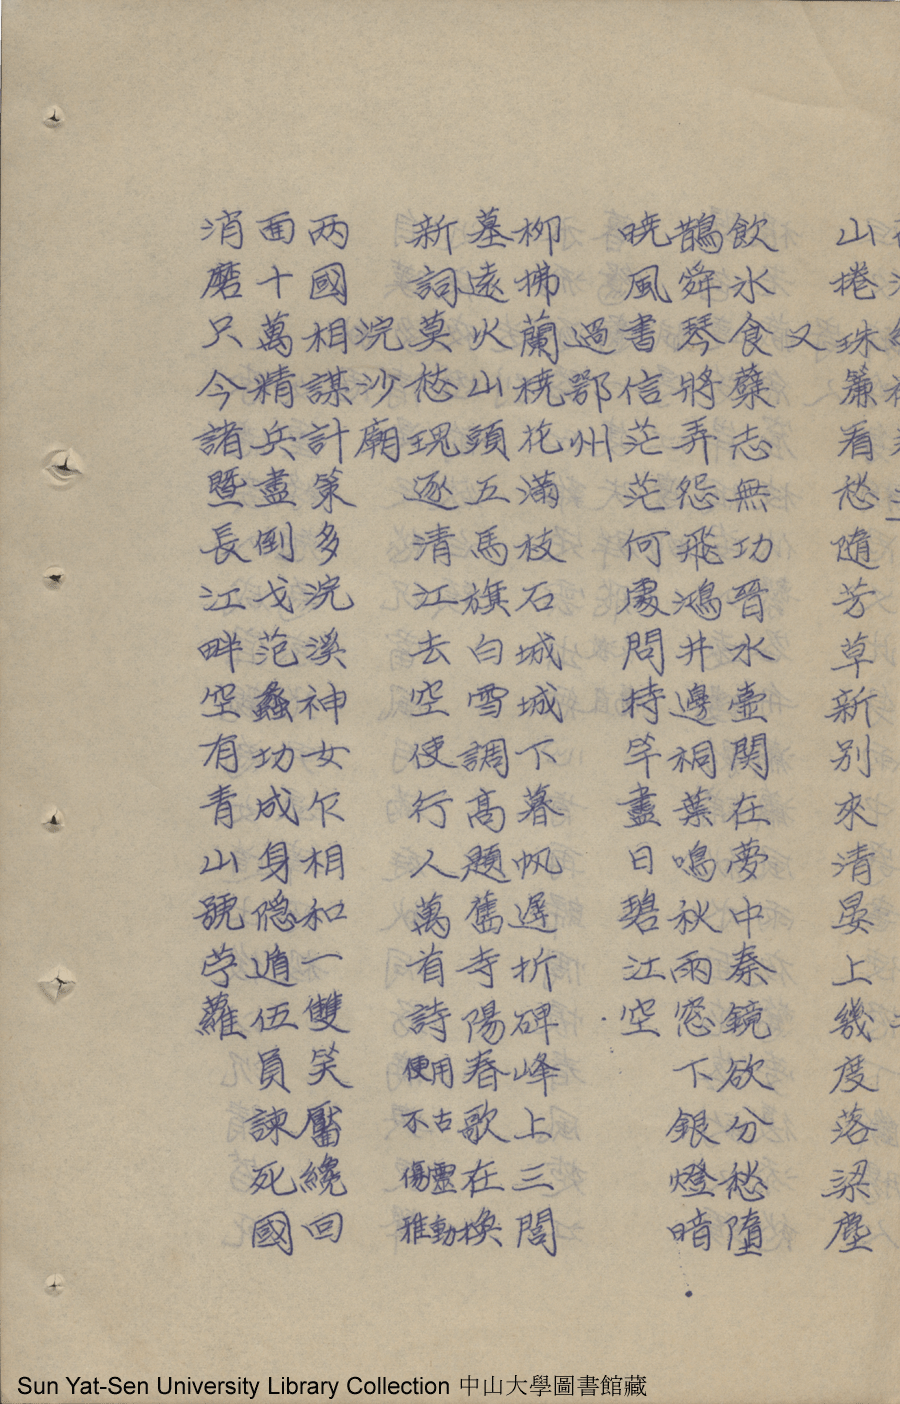 山捲珠簾看愁隨芳草新別來清晏上幾度落梁塵
又
飲氷食蘗志無功晉水壷関在夢中秦鏡欲分愁墮
鵲舜琴將弄怨飛鴻井邊桐葉鳴秋雨窓下銀燈暗
暁風書信茫茫何處問持竿盡日碧江空
過鄂州
柳拂蘭橈花滿枝石城城下暮帆遲折碑峰上三閭
墓遠火山頭五馬旗白雪調高題舊寺陽春歌在換
新詞莫愁瑰逐清江去空使行人萬首詩
便用不古傷靈雅動
浣沙廟
两國相謀計策多浣溪神女欠相和一雙笑靨纔回
面十萬精兵盡倒戈范蠡功成身隐遁伍員諫死國
消磨只今諸暨長江畔空有青山號苧蘿
Sun Yat-Sen University Library Collection 中山大學圖書館藏